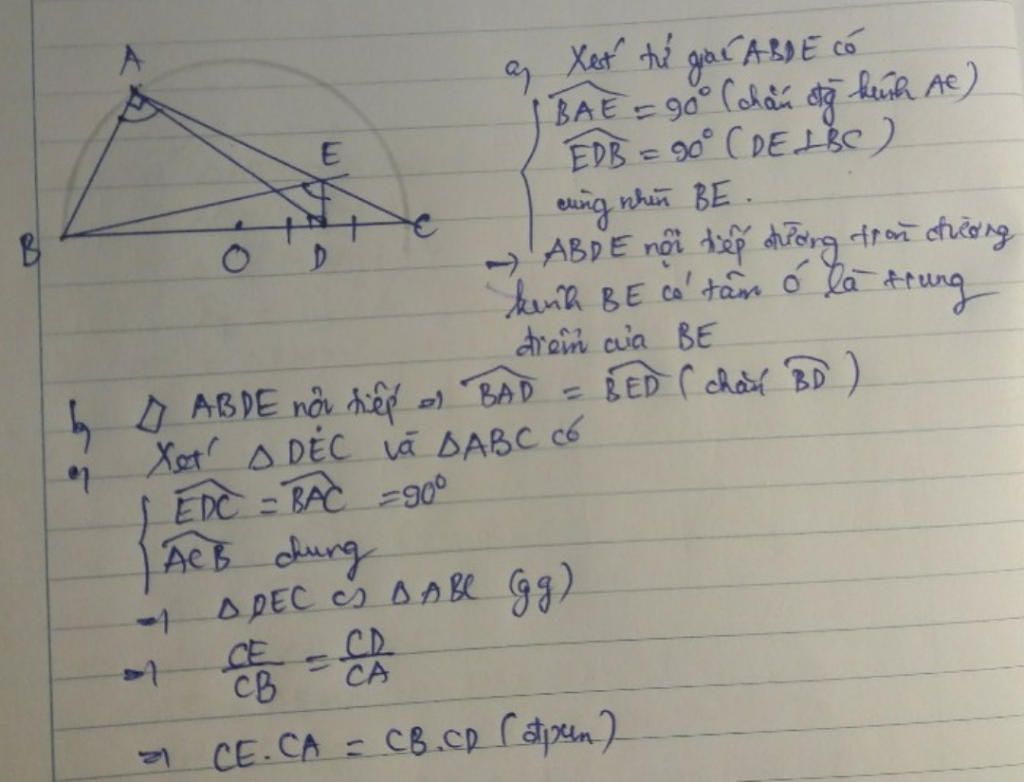 A
E
B
O
D
C
a, Xét tứ giác ABDE có
BAE = 90° (chắn đg kính AC)
EDB = 90° (DE⊥BC)
cùng nhìn BE.
→ ABDE nội tiếp đường tròn đường
kính BE có tâm O' là trung
điểm của BE
b, ABDE nội tiếp ⇒ BAD = BED (chắn BD)
⇒ Xét ΔDEC và ΔABC có
EDC = BAC = 90°
ACB chung
⇒ ΔDEC ∽ ΔABC (gg)
⇒ CE/CB = CD/CA
⇒ CE.CA = CB.CD (đpcm)